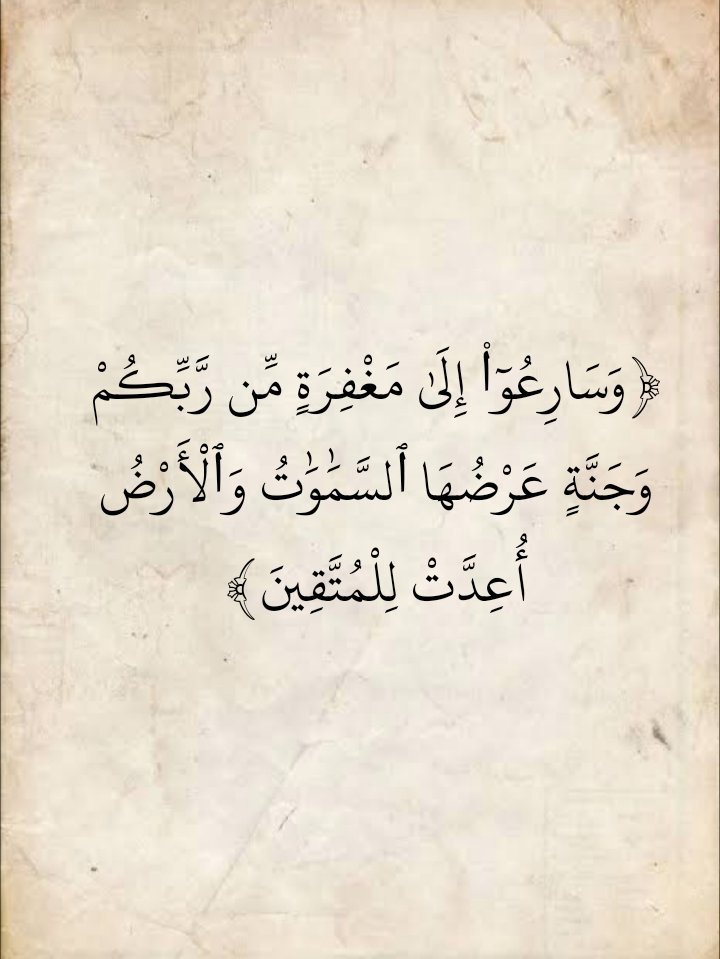 ﴿وَسَارِعُوٓا۟ إِلَىٰ مَغْفِرَةٍ مِّن رَّبِّكُمْ
وَجَنَّةٍ عَرْضُهَا ٱلسَّمَٰوَٰتُ وَٱلْأَرْضُ
أُعِدَّتْ لِلْمُتَّقِينَ﴾